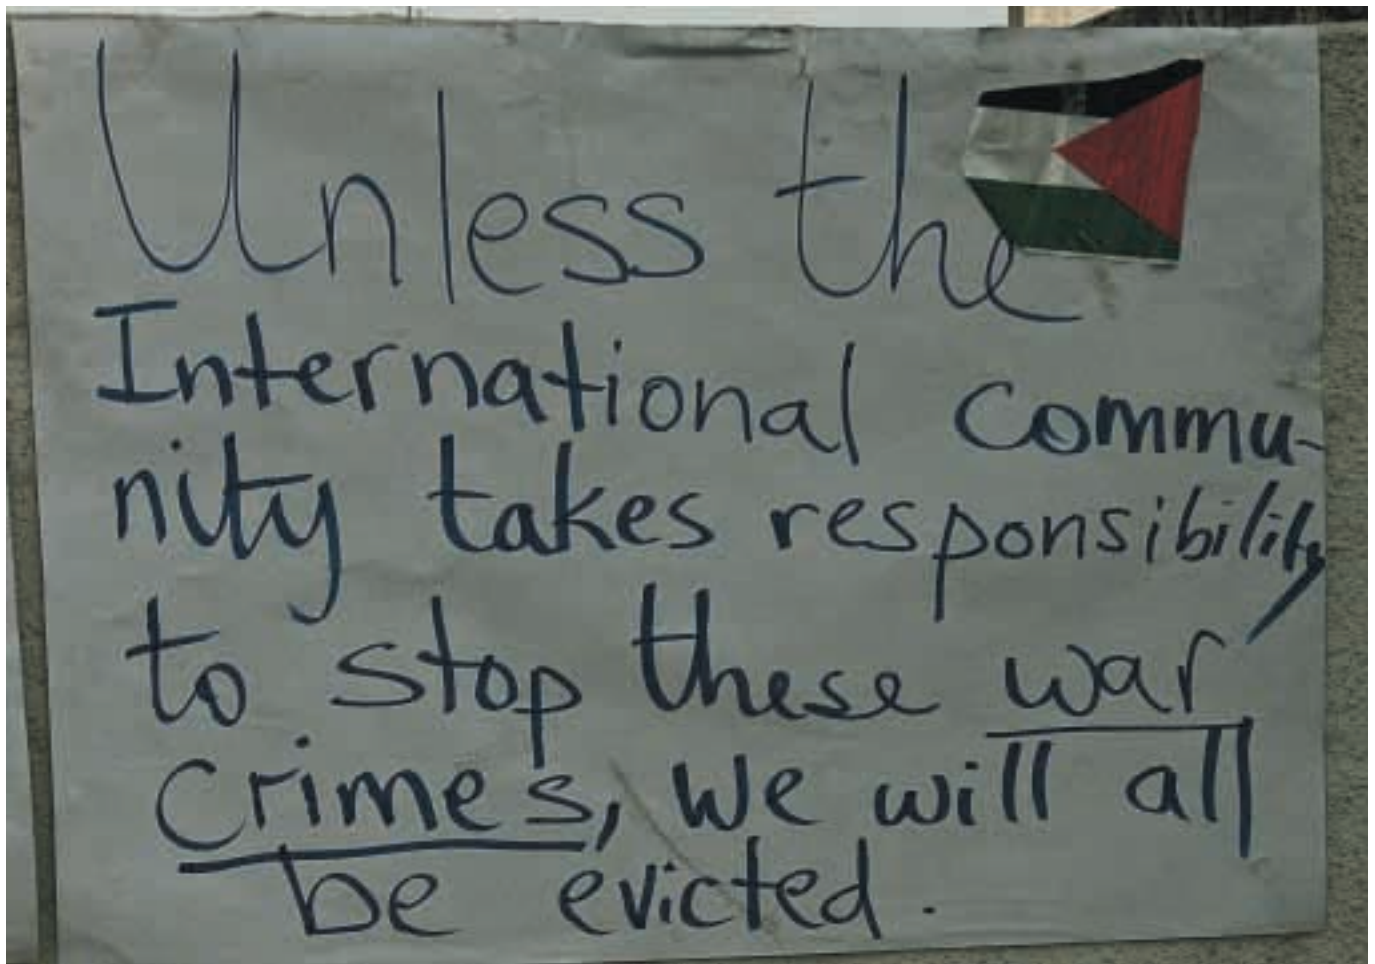 Unless the
International commu-
nity takes responsibility
to stop these war
crimes, we will all
be evicted.